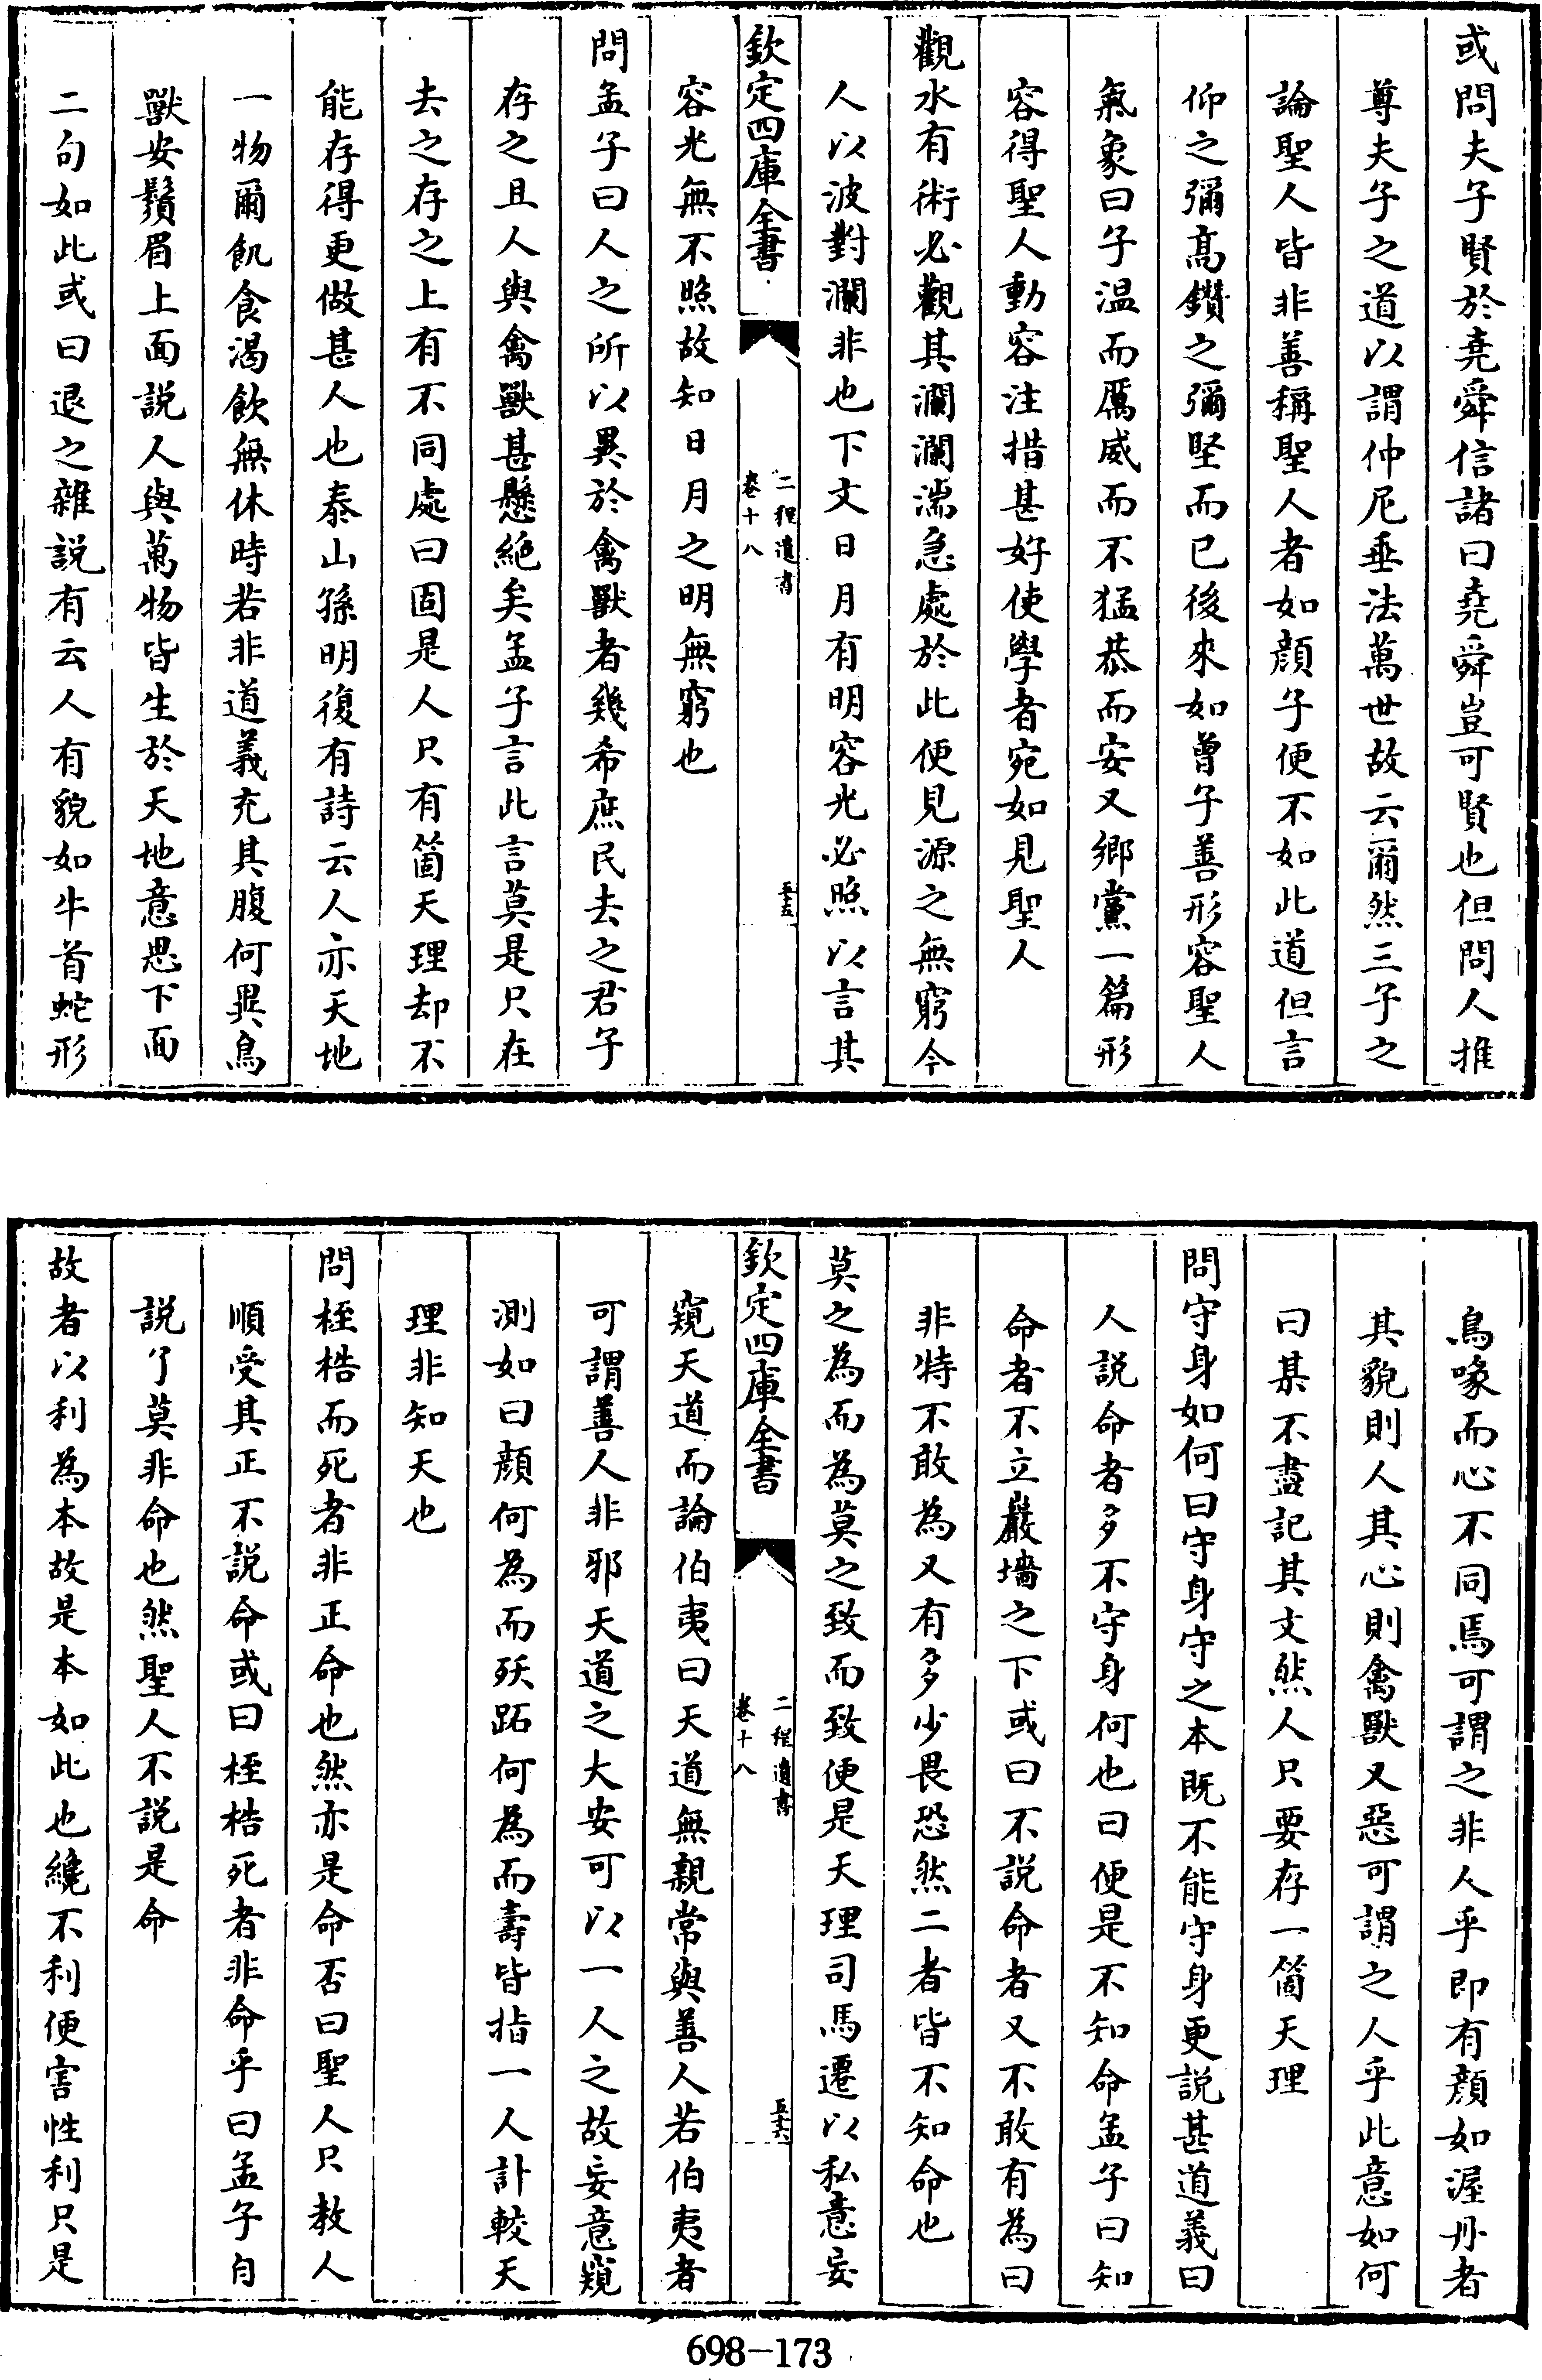 或問夫子賢於堯舜信諸曰堯舜豈可賢也但問人推
尊夫子之道以謂仲尼垂法萬世故云爾然三子之
論聖人皆非善稱聖人者如顔子便不如此道但言
仰之彌高鑽之彌堅而已後來如曾子善形容聖人
氣象曰子温而厲威而不猛恭而安又鄉黨一篇形
容得聖人動容注措甚好使學者宛如見聖人
觀水有術必觀其瀾瀾湍急處於此便見源之無窮今
人以波對瀾非也下文日月有明容光必照以言其
欽定四庫全書
二程遺書
卷十八
五十五
容光無不照故知日月之明無窮也
問孟子曰人之所以異於禽獸者幾希庶民去之君子
存之且人與禽獸甚懸絶矣孟子言此言莫是只在
去之存之上有不同處曰固是人只有箇天理却不
能存得更做甚人也泰山孫明復有詩云人亦天地
一物爾飢食渴飲無休時若非道義充其腹何異鳥
獸安鬚眉上面説人與萬物皆生於天地意思下面
二句如此或曰退之雜説有云人有貌如牛首蛇形
鳥喙而心不同焉可謂之非人乎即有顔如渥丹者
其貌則人其心則禽獸又惡可謂之人乎此意如何
曰某不盡記其文然人只要存一箇天理
問守身如何曰守身守之本既不能守身更説甚道義曰
人説命者多不守身何也曰便是不知命孟子曰知
命者不立巖墻之下或曰不説命者又不敢有為曰
非特不敢為又有多少畏恐然二者皆不知命也
莫之為而為莫之致而致便是天理司馬遷以私意妄
欽定四庫全書
二程遺書
卷十八
五十六
窺天道而論伯夷曰天道無親常與善人若伯夷者
可謂善人非邪天道之大安可以一人之故妄意窺
測如曰顔何為而殀跖何為而壽皆指一人計較天
理非知天也
問桎梏而死者非正命也然亦是命否曰聖人只教人
順受其正不説命或曰桎梏死者非命乎曰孟子自
説了莫非命也然聖人不説是命
故者以利為本故是本如此也纔不利便害性利只是
698-173